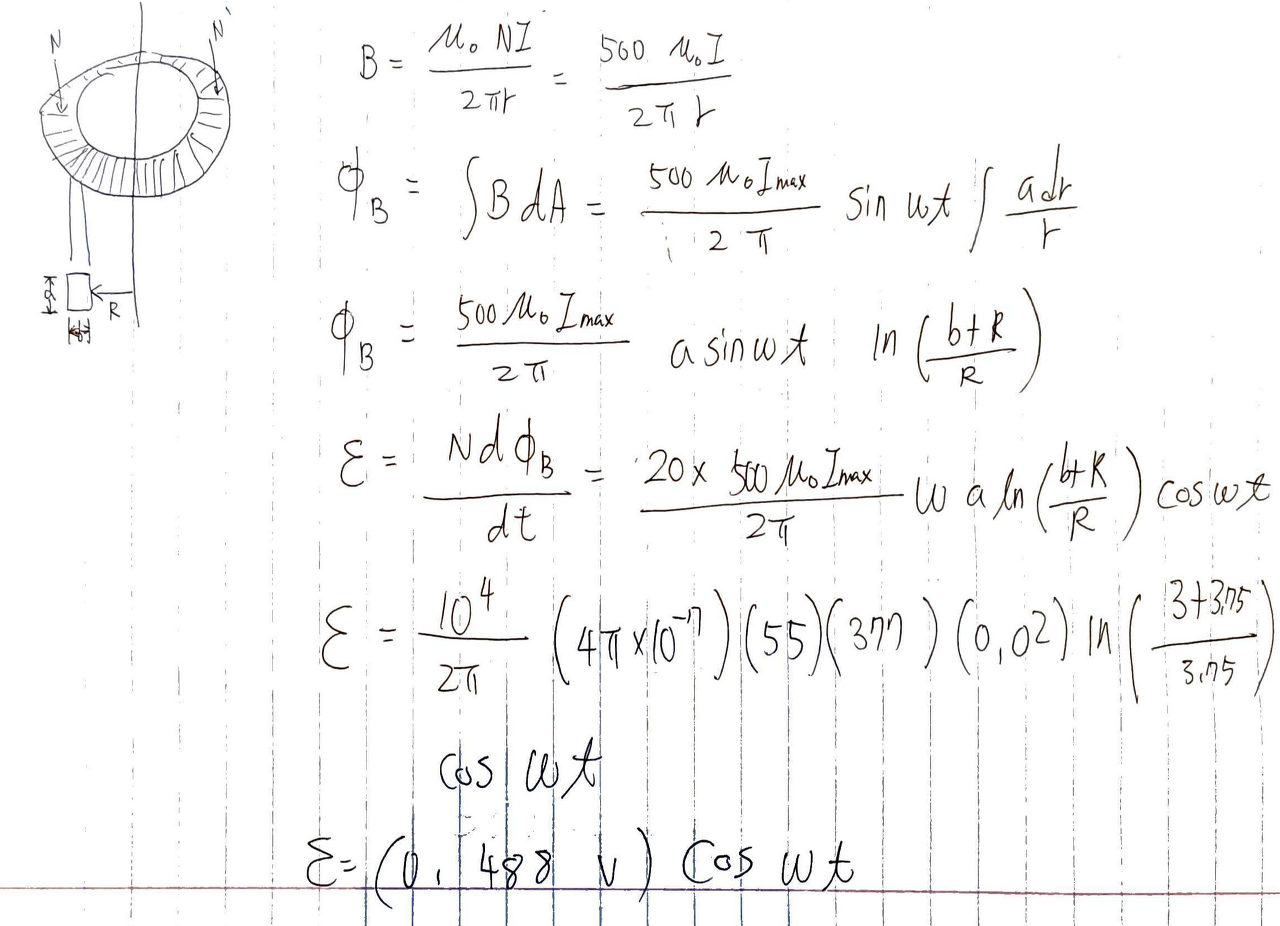 N N'
a b R
B = μ₀ NI / 2πr = 500 μ₀I / 2πr
ϕ_B = ∫B dA = 500 μ₀I_max / 2π sin ωt ∫ a dr / r
ϕ_B = 500 μ₀ I_max / 2π a sin ωt ln (b+R / R)
ε = N dϕ_B / dt = 20 × 500 μ₀I_max / 2π ω a ln (b+R / R) cos ωt
ε = 10⁴ / 2π (4π×10⁻⁷)(55)(377)(0,02) ln (3+3.75 / 3.75)
cos ωt
ε = (0.488 V) cos ωt